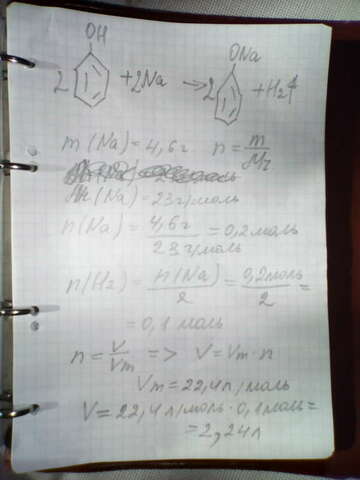 OH ONa
2 + 2Na → 2 + H₂↑
m(Na) = 4,6г n = m/Mr
Mr(Na) = 23 г/моль
n(Na) = 4,6г/23 г/моль = 0,2 моль
n(H₂) = n(Na)/2 = 0,2 моль/2 =
= 0,1 моль
n = V/Vm => V = Vm · n
Vm = 22,4 л/моль
V = 22,4 л/моль · 0,1 моль =
= 2,24 л